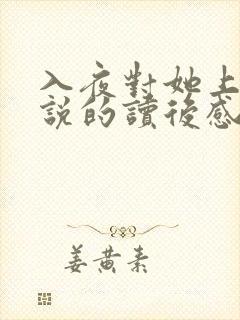 入夜對她上
說的讀後感
姜黄素